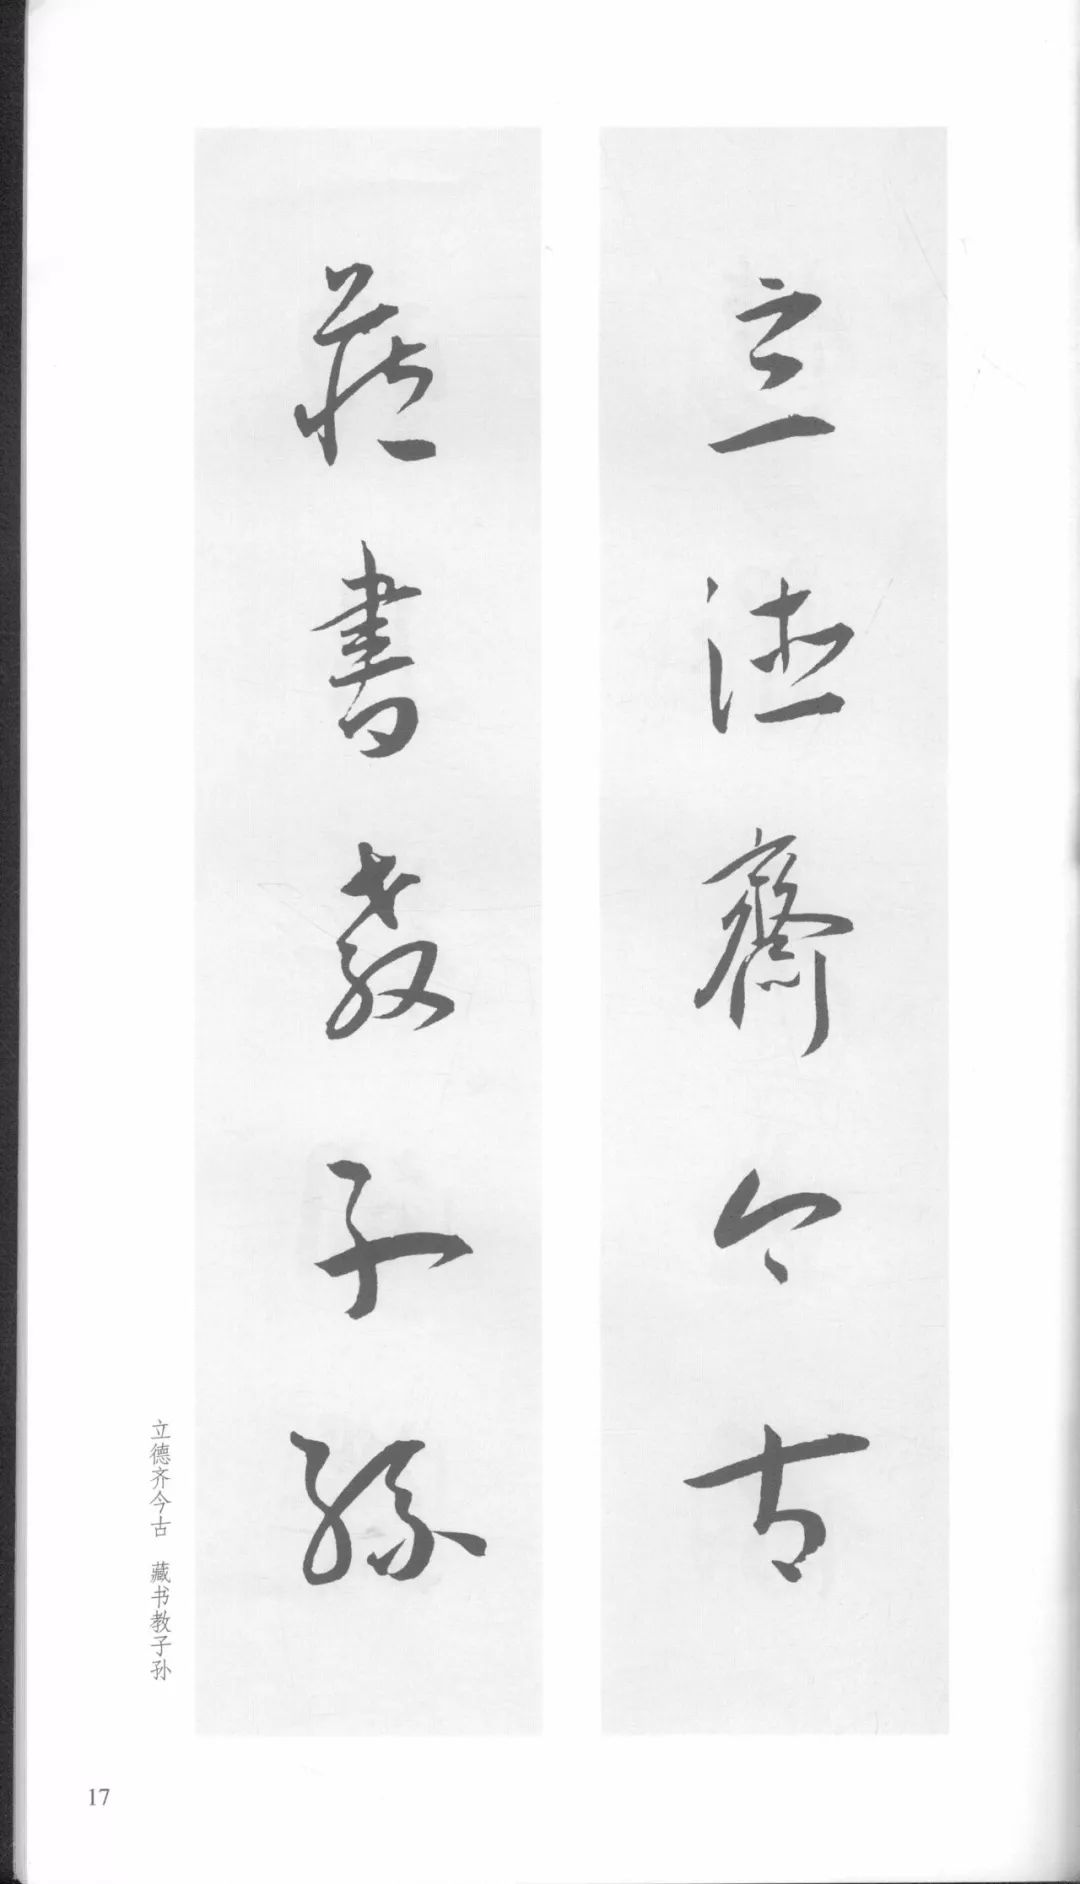 立德齊今古
藏書教子孫
立德齐今古 藏书教子孙
17